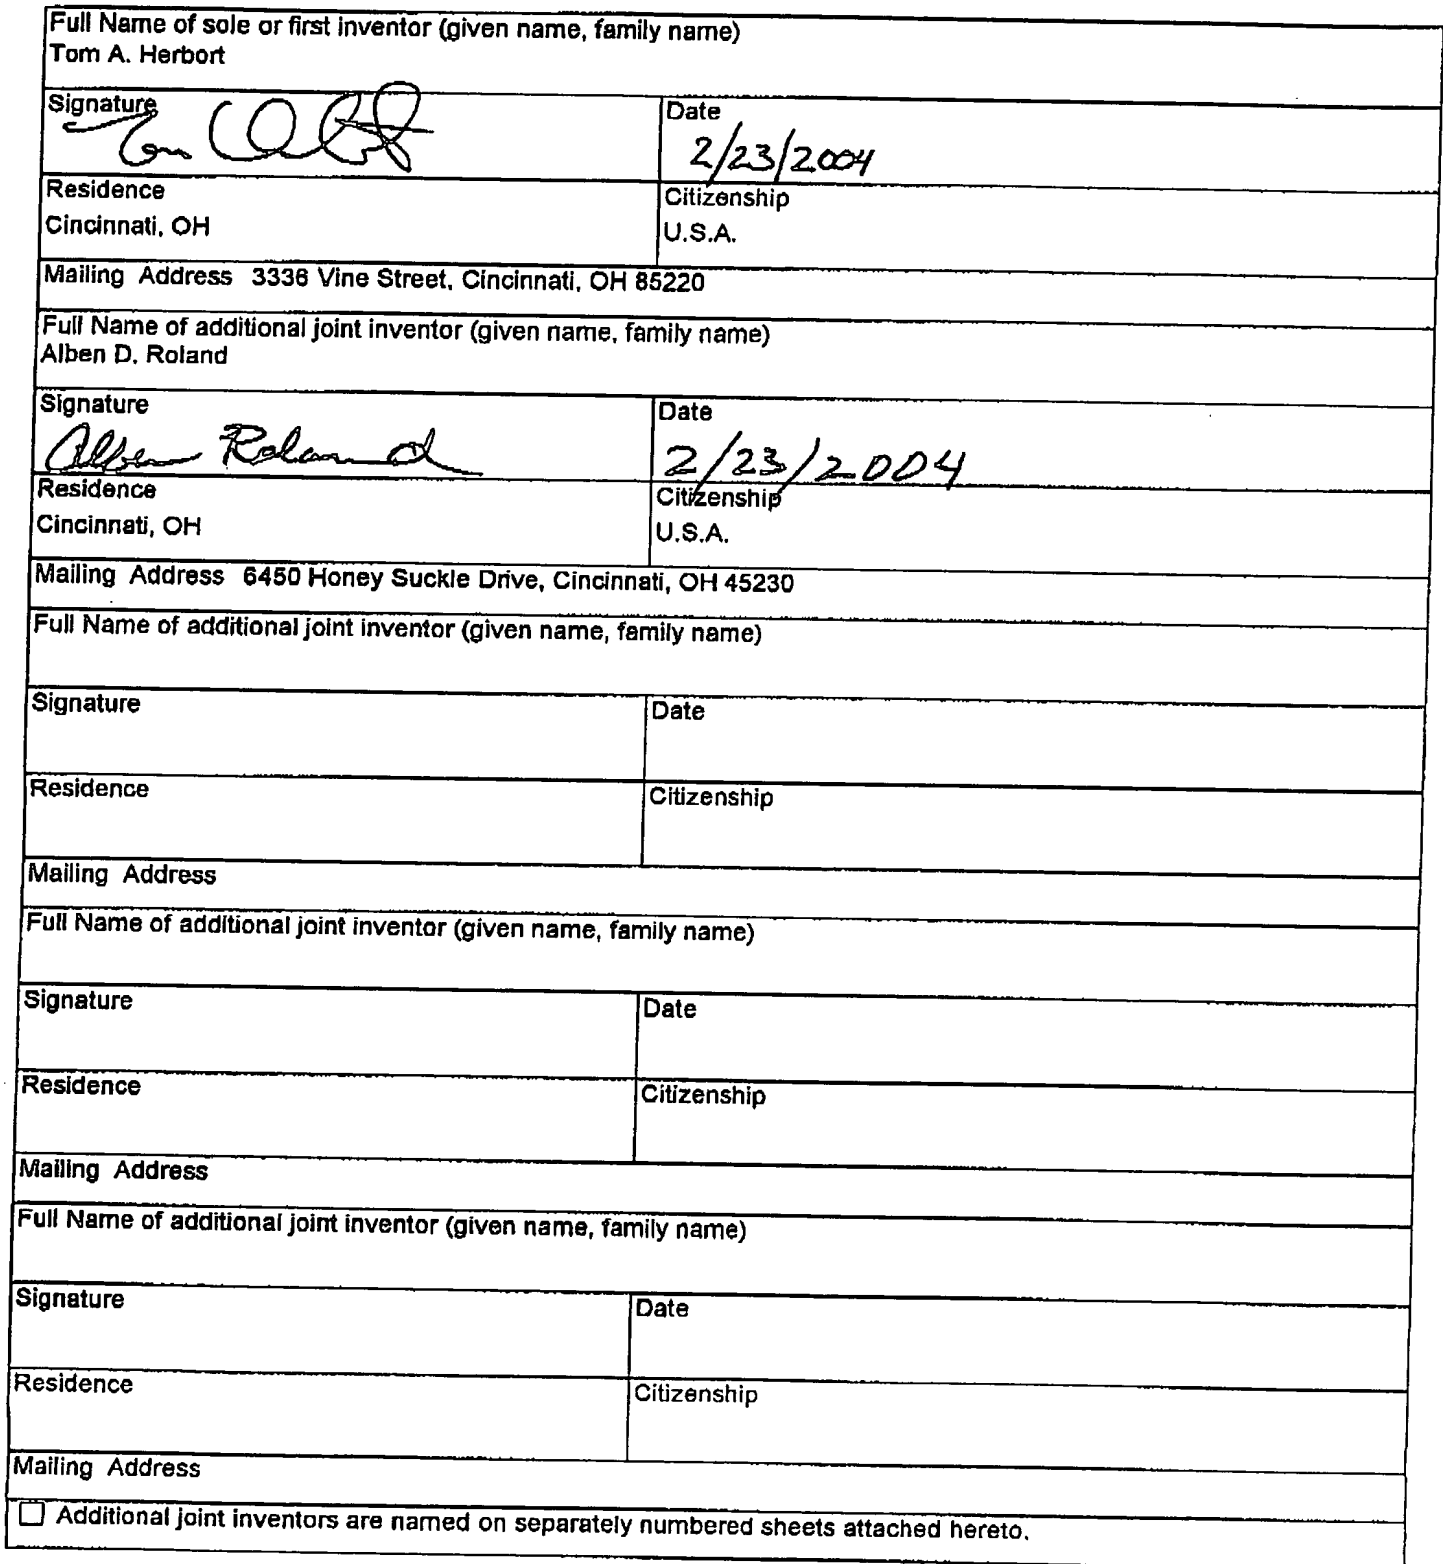 Full Name of sole or first inventor (given name, family name)
Tom A. Herbort
Signature
Date
2/23/2004
Residence
Citizenship
Cincinnati, OH
U.S.A.
Mailing Address 3336 Vine Street, Cincinnati, OH 85220
Full Name of additional joint inventor (given name, family name)
Alben D. Roland
Signature
Date
Alben Roland
2/23/2004
Residence
Citizenship
Cincinnati, OH
U.S.A.
Mailing Address 6450 Honey Suckle Drive, Cincinnati, OH 45230
Full Name of additional joint inventor (given name, family name)
Signature
Date
Residence
Citizenship
Mailing Address
Full Name of additional joint inventor (given name, family name)
Signature
Date
Residence
Citizenship
Mailing Address
Full Name of additional joint inventor (given name, family name)
Signature
Date
Residence
Citizenship
Mailing Address
Additional joint inventors are named on separately numbered sheets attached hereto.